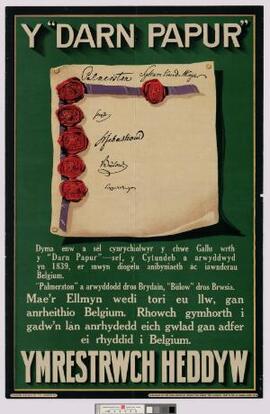 Y "DARN PAPUR"
Palmerston
Dyma enw a sel cynrychiolwyr y chwe Gallu wrth
y "Darn Papur"—sef, y Cytundeb a arwyddwyd
yn 1839, er mwyn diogelu anibyniaeth ac iawnderau
Belgium.
"Palmerston" a arwyddodd dros Brydain, "Bülow" dros Brwsia.
Mae'r Ellmyn wedi tori eu llw, gan
anrheithio Belgium. Rhowch gymhorth i
gadw'n lân anrhydedd eich gwlad gan adfer
ei rhyddid i Belgium.
YMRESTRWCH HEDDYW